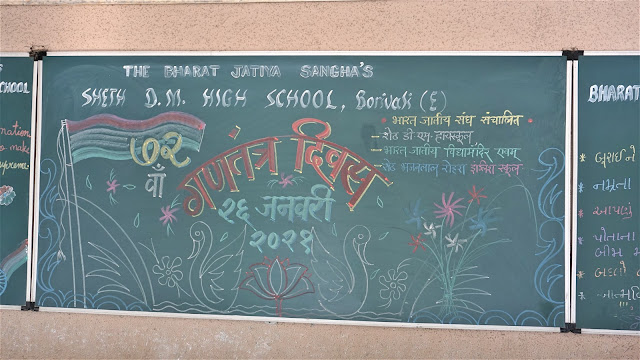 CHOOL
to make
THE BHARAT JATIYA SANGHA'S
SHETH D.M. HIGH SCHOOL, Borivali (E)
• भारत जातीय संघ संचालित •
– शेठ डी. एम. हायस्कूल
– भारत जातीय विद्यामंदिर
शेठ भजनलाल रोहरा इंग्लिश स्कूल
७२
वाँ
गणतंत्र दिवस
२६ जनवरी
२०२१
BHARAT
બુરાઈને
નમ્રતા
પોતાના